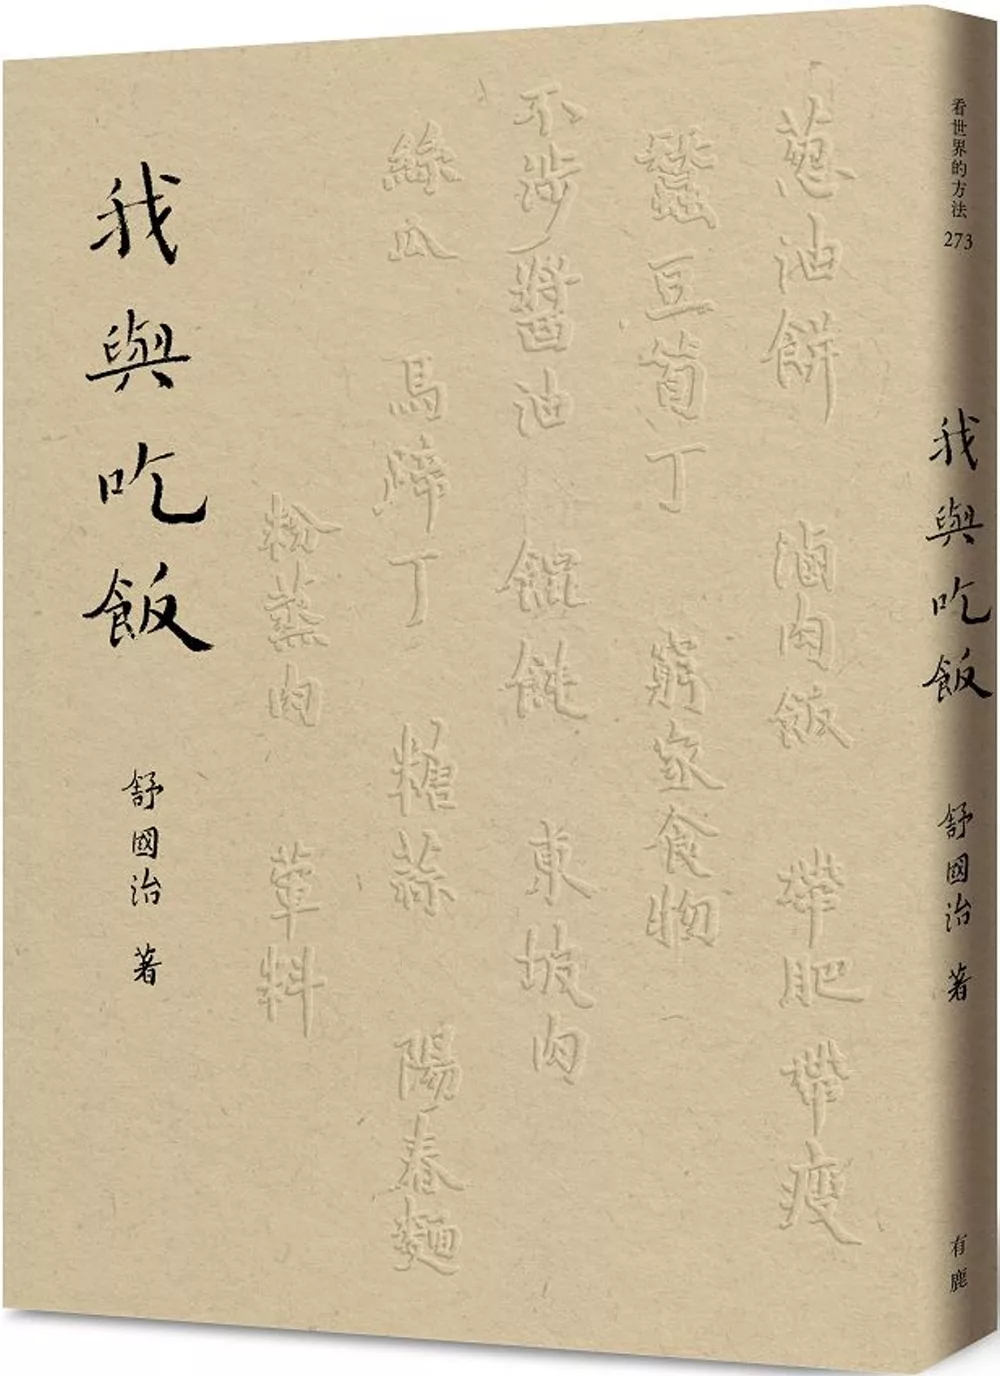 蔥油餅 滷肉飯 帶肥帶瘦
蠶豆筍丁 窮家食物
不涉醬油 餛飩 東坡肉
絲瓜 馬蹄丁 糖蒜 陽春麵
粉蒸肉 葷料
我與吃飯
舒國治 著
看世界的方法 273
我與吃飯
舒國治 著
有鹿